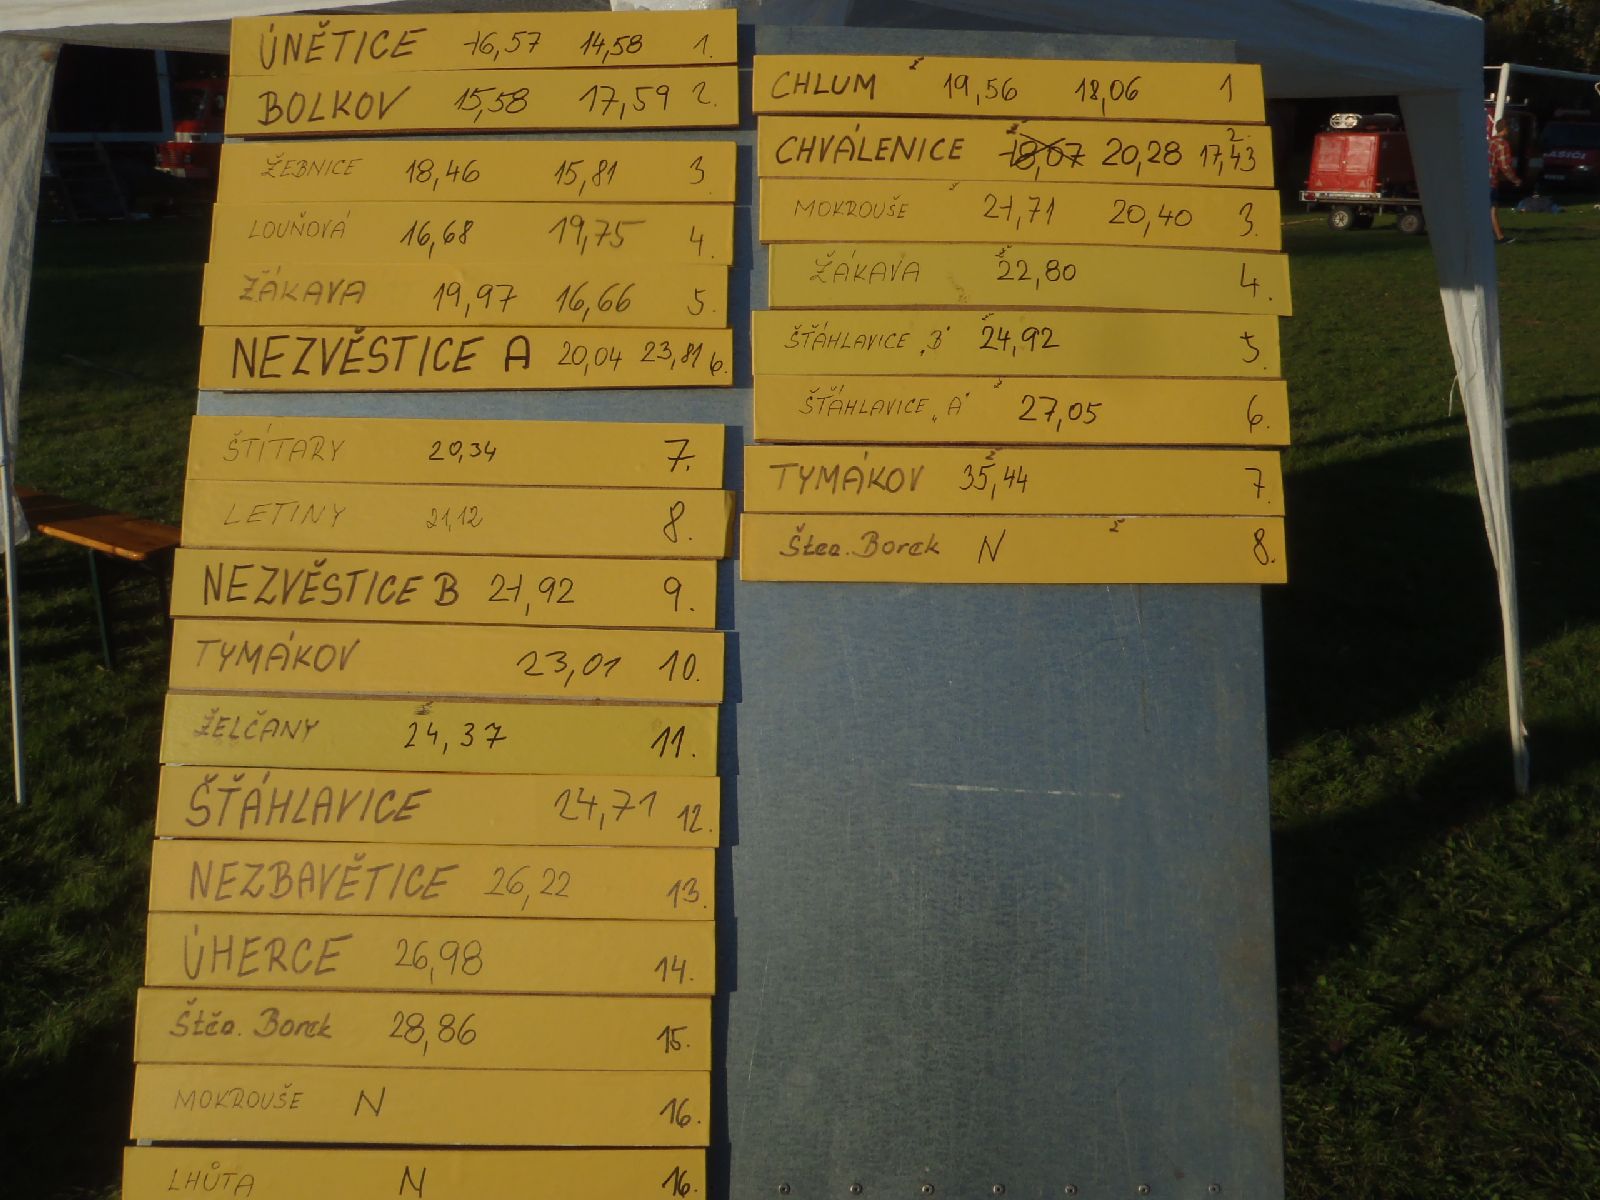 ÚNĚTICE 16,57 14,58 1.
BOLKOV 15,58 17,59 2.
ŽEBNICE 18,46 15,81 3
LOUŇOVÁ 16,68 19,75 4.
ŽÁKAVA 19,97 16,66 5.
NEZVĚSTICE A 20,04 23,81 6.
ŠTÍTARY 20,34 7.
LETINY 21,12 8.
NEZVĚSTICE B 21,92 9.
TYMÁKOV 23,01 10.
ŽELČANY 24,37 11.
ŠŤÁHLAVICE 24,71 12.
NEZBAVĚTICE 26,22 13.
ÚHERCE 26,98 14.
Štěo. Borek 28,86 15.
MOKROUŠE N 16.
LHŮTA N 16.
CHLUM ž 19,56 18,06 1
CHVÁLENICE ž 18,07 20,28 17,43 2.
MOKROUŠE ž 21,71 20,40 3.
ŽÁKAVA ž 22,80 4.
ŠŤÁHLAVICE „B" ž 24,92 5.
ŠŤÁHLAVICE „A" ž 27,05 6.
TYMÁKOV ž 35,44 7.
Štěo. Borek N ž 8.